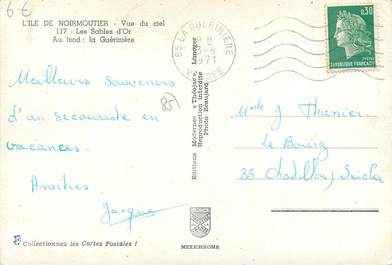 6€
L'ILE DE NOIRMOUTIER - Vue du ciel
117 - Les Sables d'Or
Au fond : la Guérinière
Meilleurs souvenirs
d'un
en
vacances.
Amitiés
Jacques
85)
Collectionnez les Cartes Postales !
Editions Modernes « Théojac » Limoges
Reproduction interdite
Photo Beaujard
MEXICHROME
85 LA GUÉRINIÈRE
1971
0,30
REPUBLIQUE FRANÇAISE
POSTES
Le Bourg
35